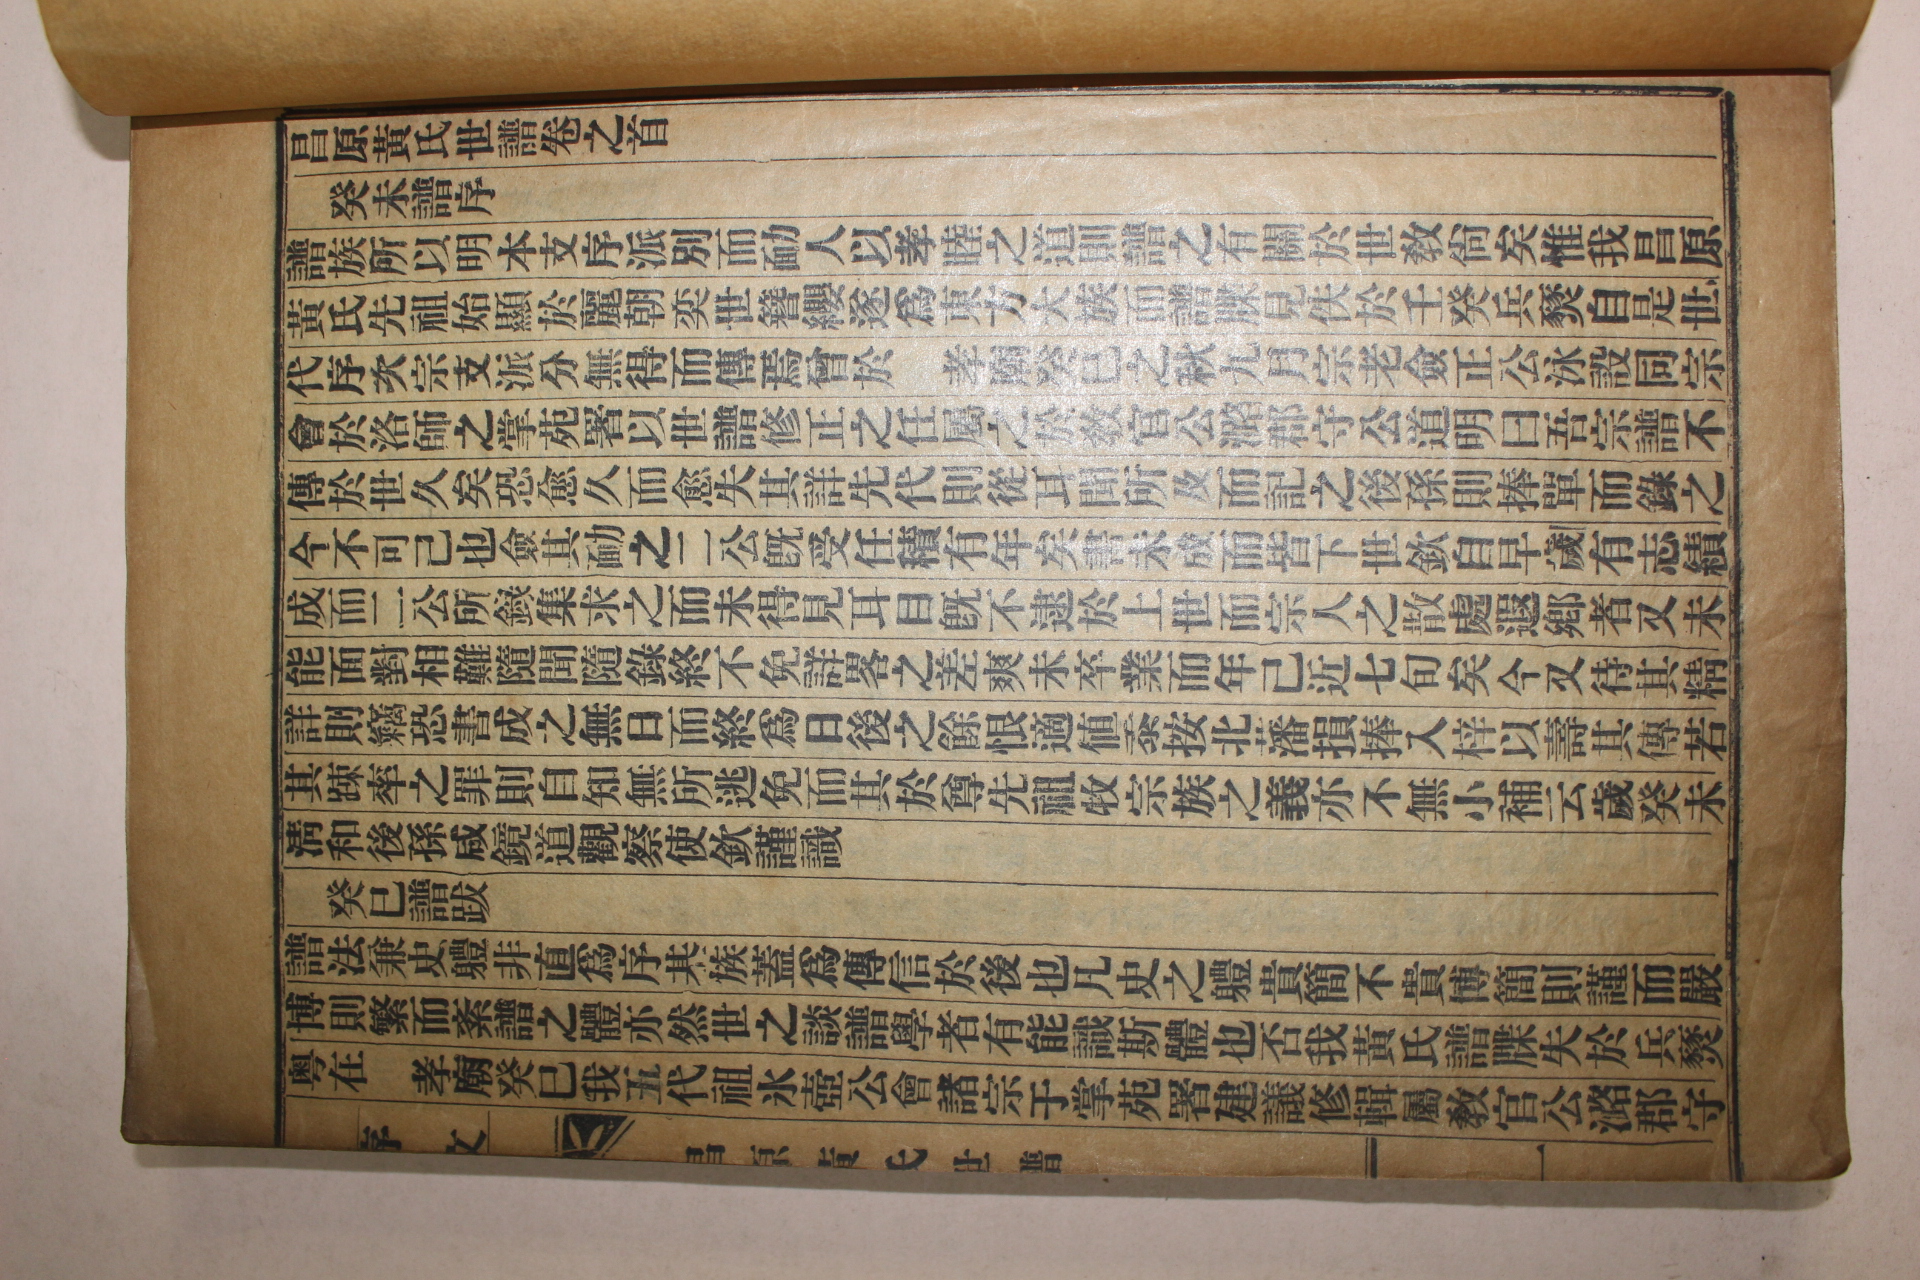 昌原黃氏世譜卷之首
癸未譜序
譜族所以明本支序派別而勸人以孝睦之道則譜之有關於世敎尙矣惟我昌原
黃氏先祖始顯於麗朝奕世簪纓遂爲東方大族而譜牒見佚於壬癸兵燹自是世
代序次宗支派分無得而傳焉曾於 孝廟癸巳之秋九月宗老僉正公泳設同宗
會於洛師之掌苑署以世譜修正之任屬之於敎官公潞郡守公道明曰吾宗譜不
傳於世久矣恐愈久而愈失其詳先代則從耳聞所及而記之後孫則捧單而錄之
今不可已也僉其勸之二公旣受任積有年矣書未成而皆下世欽自早歲有志績
成而二公所錄集求之而未得見耳目旣不逮於上世而宗人之散處遐鄕者又未
能面對相難隨聞隨錄終不免詳畧之差爽未卒業而年已近七旬矣今又待其精
詳則竊恐書成之無日而終爲日後之餘恨適値忝按北藩損捧入梓以壽其傳若
其踈率之罪則自知無所逃免而其於尊先祖牧宗族之義亦不無小補云歲癸未
淸和後孫咸鏡道觀察使欽謹識
癸巳譜跋
譜法兼史體非直爲序其族蓋爲傳信於後也凡史之體貴簡不貴博簡則謹而嚴
博則繁而紊譜之體亦然世之談譜學者有能識斯體也否我黃氏譜牒失於兵燹
粤在 孝廟癸巳我五代祖氷壺公會諸宗于掌苑署建議修輯屬敎官公潞郡守
序文 昌原黃氏世譜 一